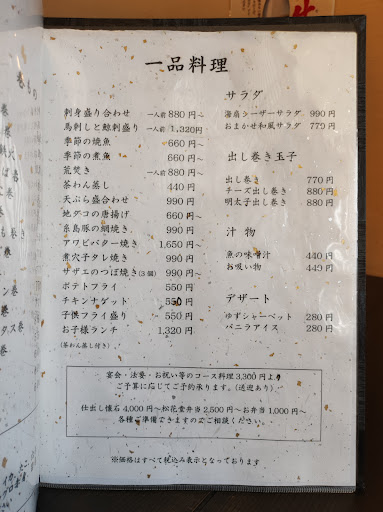 一品料理
刺身盛り合わせ 一人前 880円~
馬刺しと鯨刺盛り 一人前 1,320円~
季節の焼魚 660円~
季節の煮魚 660円~
荒焚き 一人前 880円~
茶わん蒸し 440円
天ぷら盛合わせ 990円~
地ダコの唐揚げ 660円~
糸島豚の網焼き 990円~
アワビバター焼き 1,650円~
煮穴子タレ焼き 990円~
サザエのつぼ焼き(3個) 990円~
ポテトフライ 550円
チキンナゲット 550円
子供フライ盛り 550円
お子様ランチ 1,320円
(茶わん蒸し付き)
サラダ
海扇シーザーサラダ 990円
おまかせ和風サラダ 779円
出し巻き玉子
出し巻き 770円
チーズ出し巻き 880円
明太子出し巻き 880円
汁物
魚の味噌汁 440円
お吸い物 440円
デザート
ゆずシャーベット 280円
バニラアイス 280円
宴会・法要・お祝い等のコース料理 3,300円より
ご予算に応じてご予約承ります。(送迎あり)
仕出し懐石 4,000円~松花堂弁当 2,500円~お弁当 1,000円~
各種ご準備できますのでご相談ください。
※価格はすべて税込み表示となっております